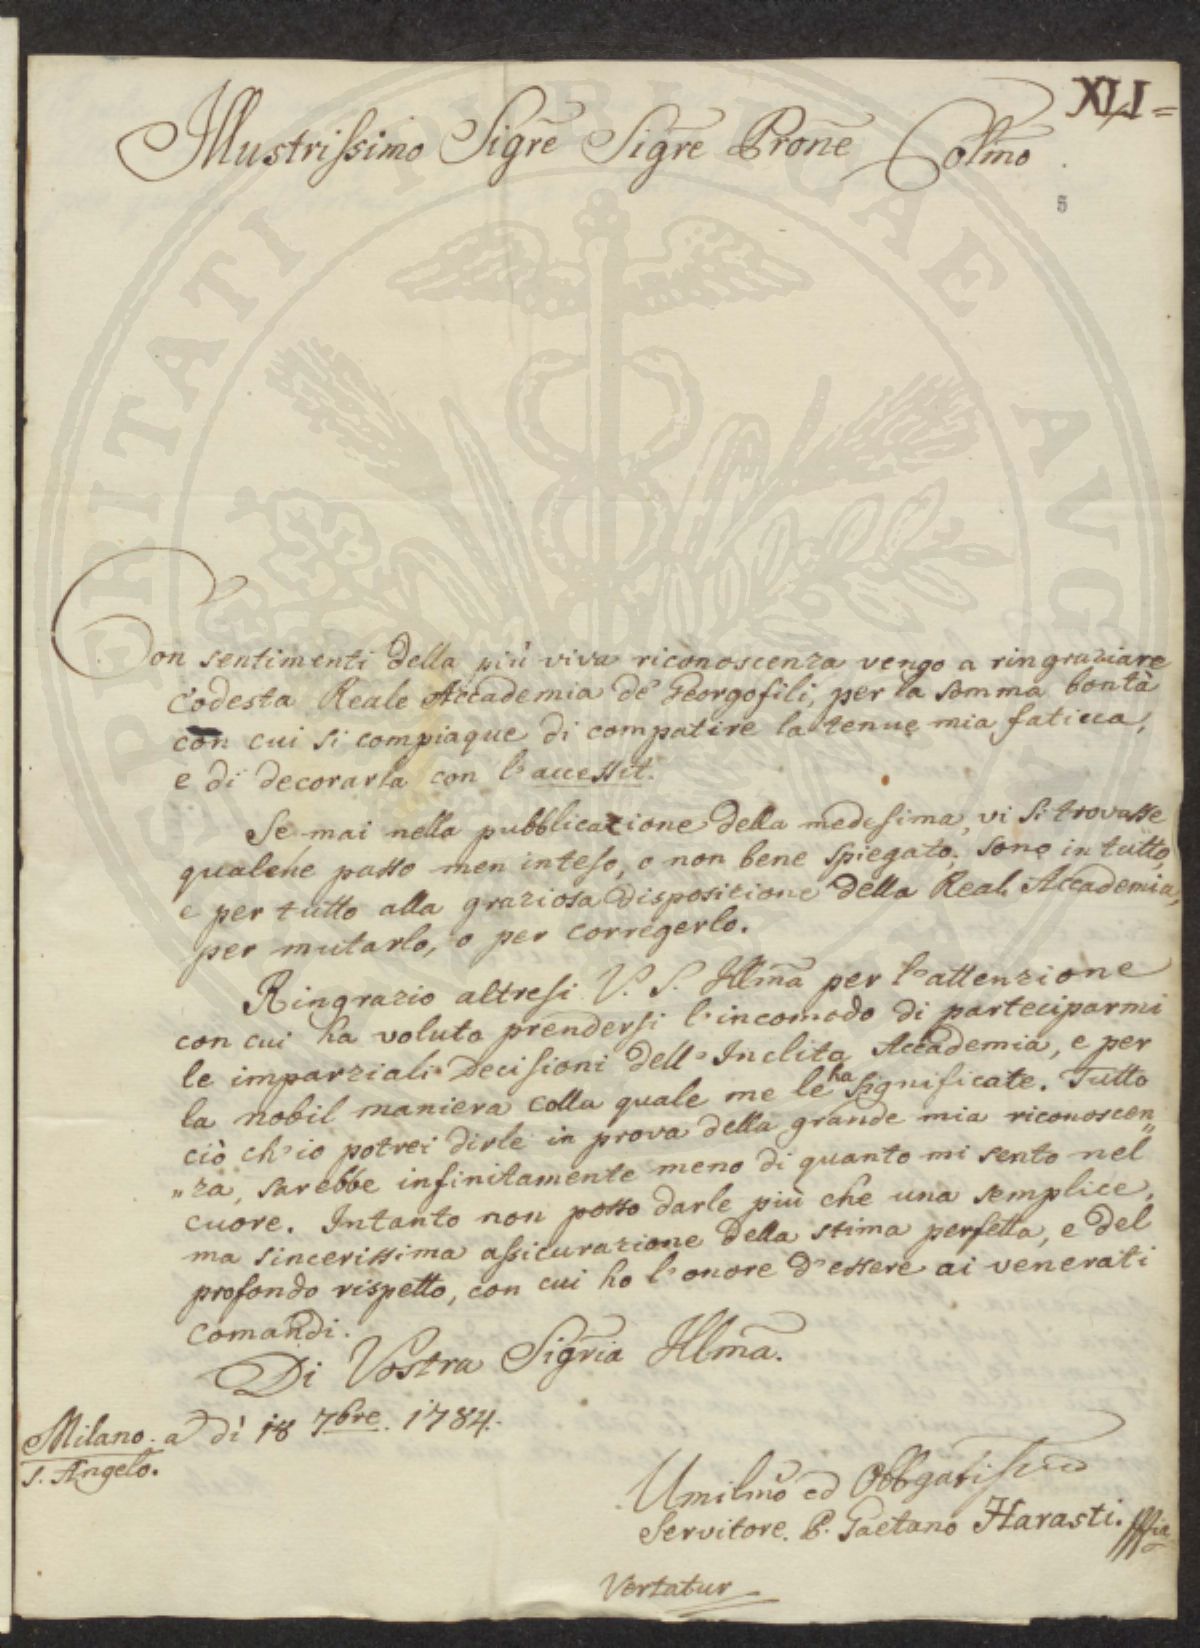 XLI =
Illustrissimo Sigre Sigre Prone Colmo
5
Con sentimenti della più viva riconoscenza vengo a ringraziare
codesta Reale Accademia de' Georgofili, per la somma bontà
con cui si compiaque di compatire la tenue mia fatica,
e di decorarla con l'accessit.
Se mai nella pubblicazione della medesima, vi si trovasse
qualche passo men inteso, o non bene spiegato. sono in tutto
e per tutto alla graziosa disposizione della Real Accademia,
per mutarlo, o per corregerlo.
Ringrazio altresi V. S. Illma per l'attenzione
con cui ha voluto prendersi l'incomodo di parteciparmi
le imparziali Decisioni dell'Inclita Accademia, e per
la nobil maniera colla quale me le ha significate. Tutto
ciò ch'io potrei dirle in prova della grande mia riconoscen„
„za, sarebbe infinitamente meno di quanto mi sento nel
cuore. Intanto non posso darle più che una semplice,
ma sincerissima assicurazione della stima perfetta, e del
profondo rispetto, con cui ho l'onore d'essere ai venerati
comandi.
Di Vostra Sigria Illma.
Milano. a dì 18 7bre. 1784.
S. Angelo.
Umilmo ed Obbgatissmo
Servitore. P. Gaetano Harasti.
Vertatur
PROSPERITATI PUBLICAE AVGENDAE